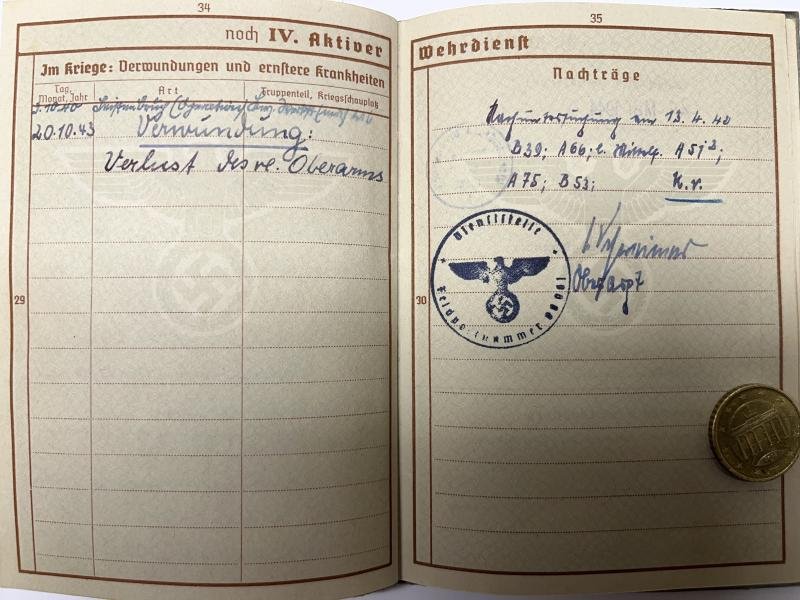 34
noch IV. Aktiver
Im Kriege: Verwundungen und ernstere Krankheiten
Tag, Monat, Jahr
Art
Truppenteil, Kriegsschauplatz
5.10.40 Leistenbruch (Operation)
20.10.43 Verwundung:
Verlust des re. Oberarms
29
35
Wehrdienst
Nachträge
Nachuntersuchung am 13.4.40
B39; A66; A75; B53; K.v.
Dienststelle
Feldpostnummer
30